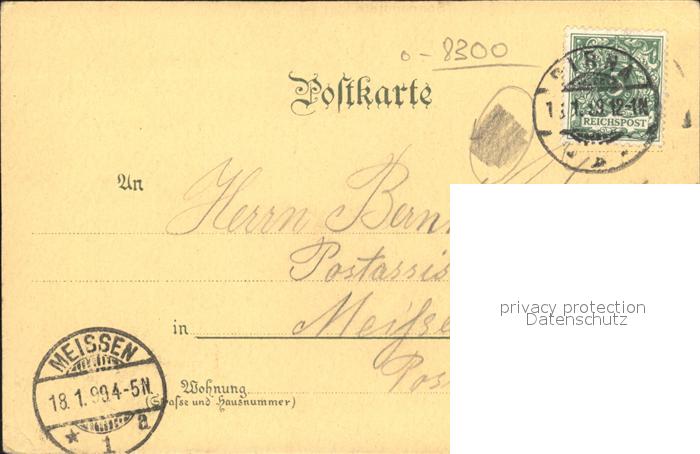 o - 8300
Postkarte
PIRNA
18.1.99.12-1N.
REICHSPOST
An
Herrn
Postassis
in Meiße
Pos
Wohnung
(Straße und Hausnummer)
MEISSEN
18.1.99.4-5N.
1 a
privacy protection
Datenschutz